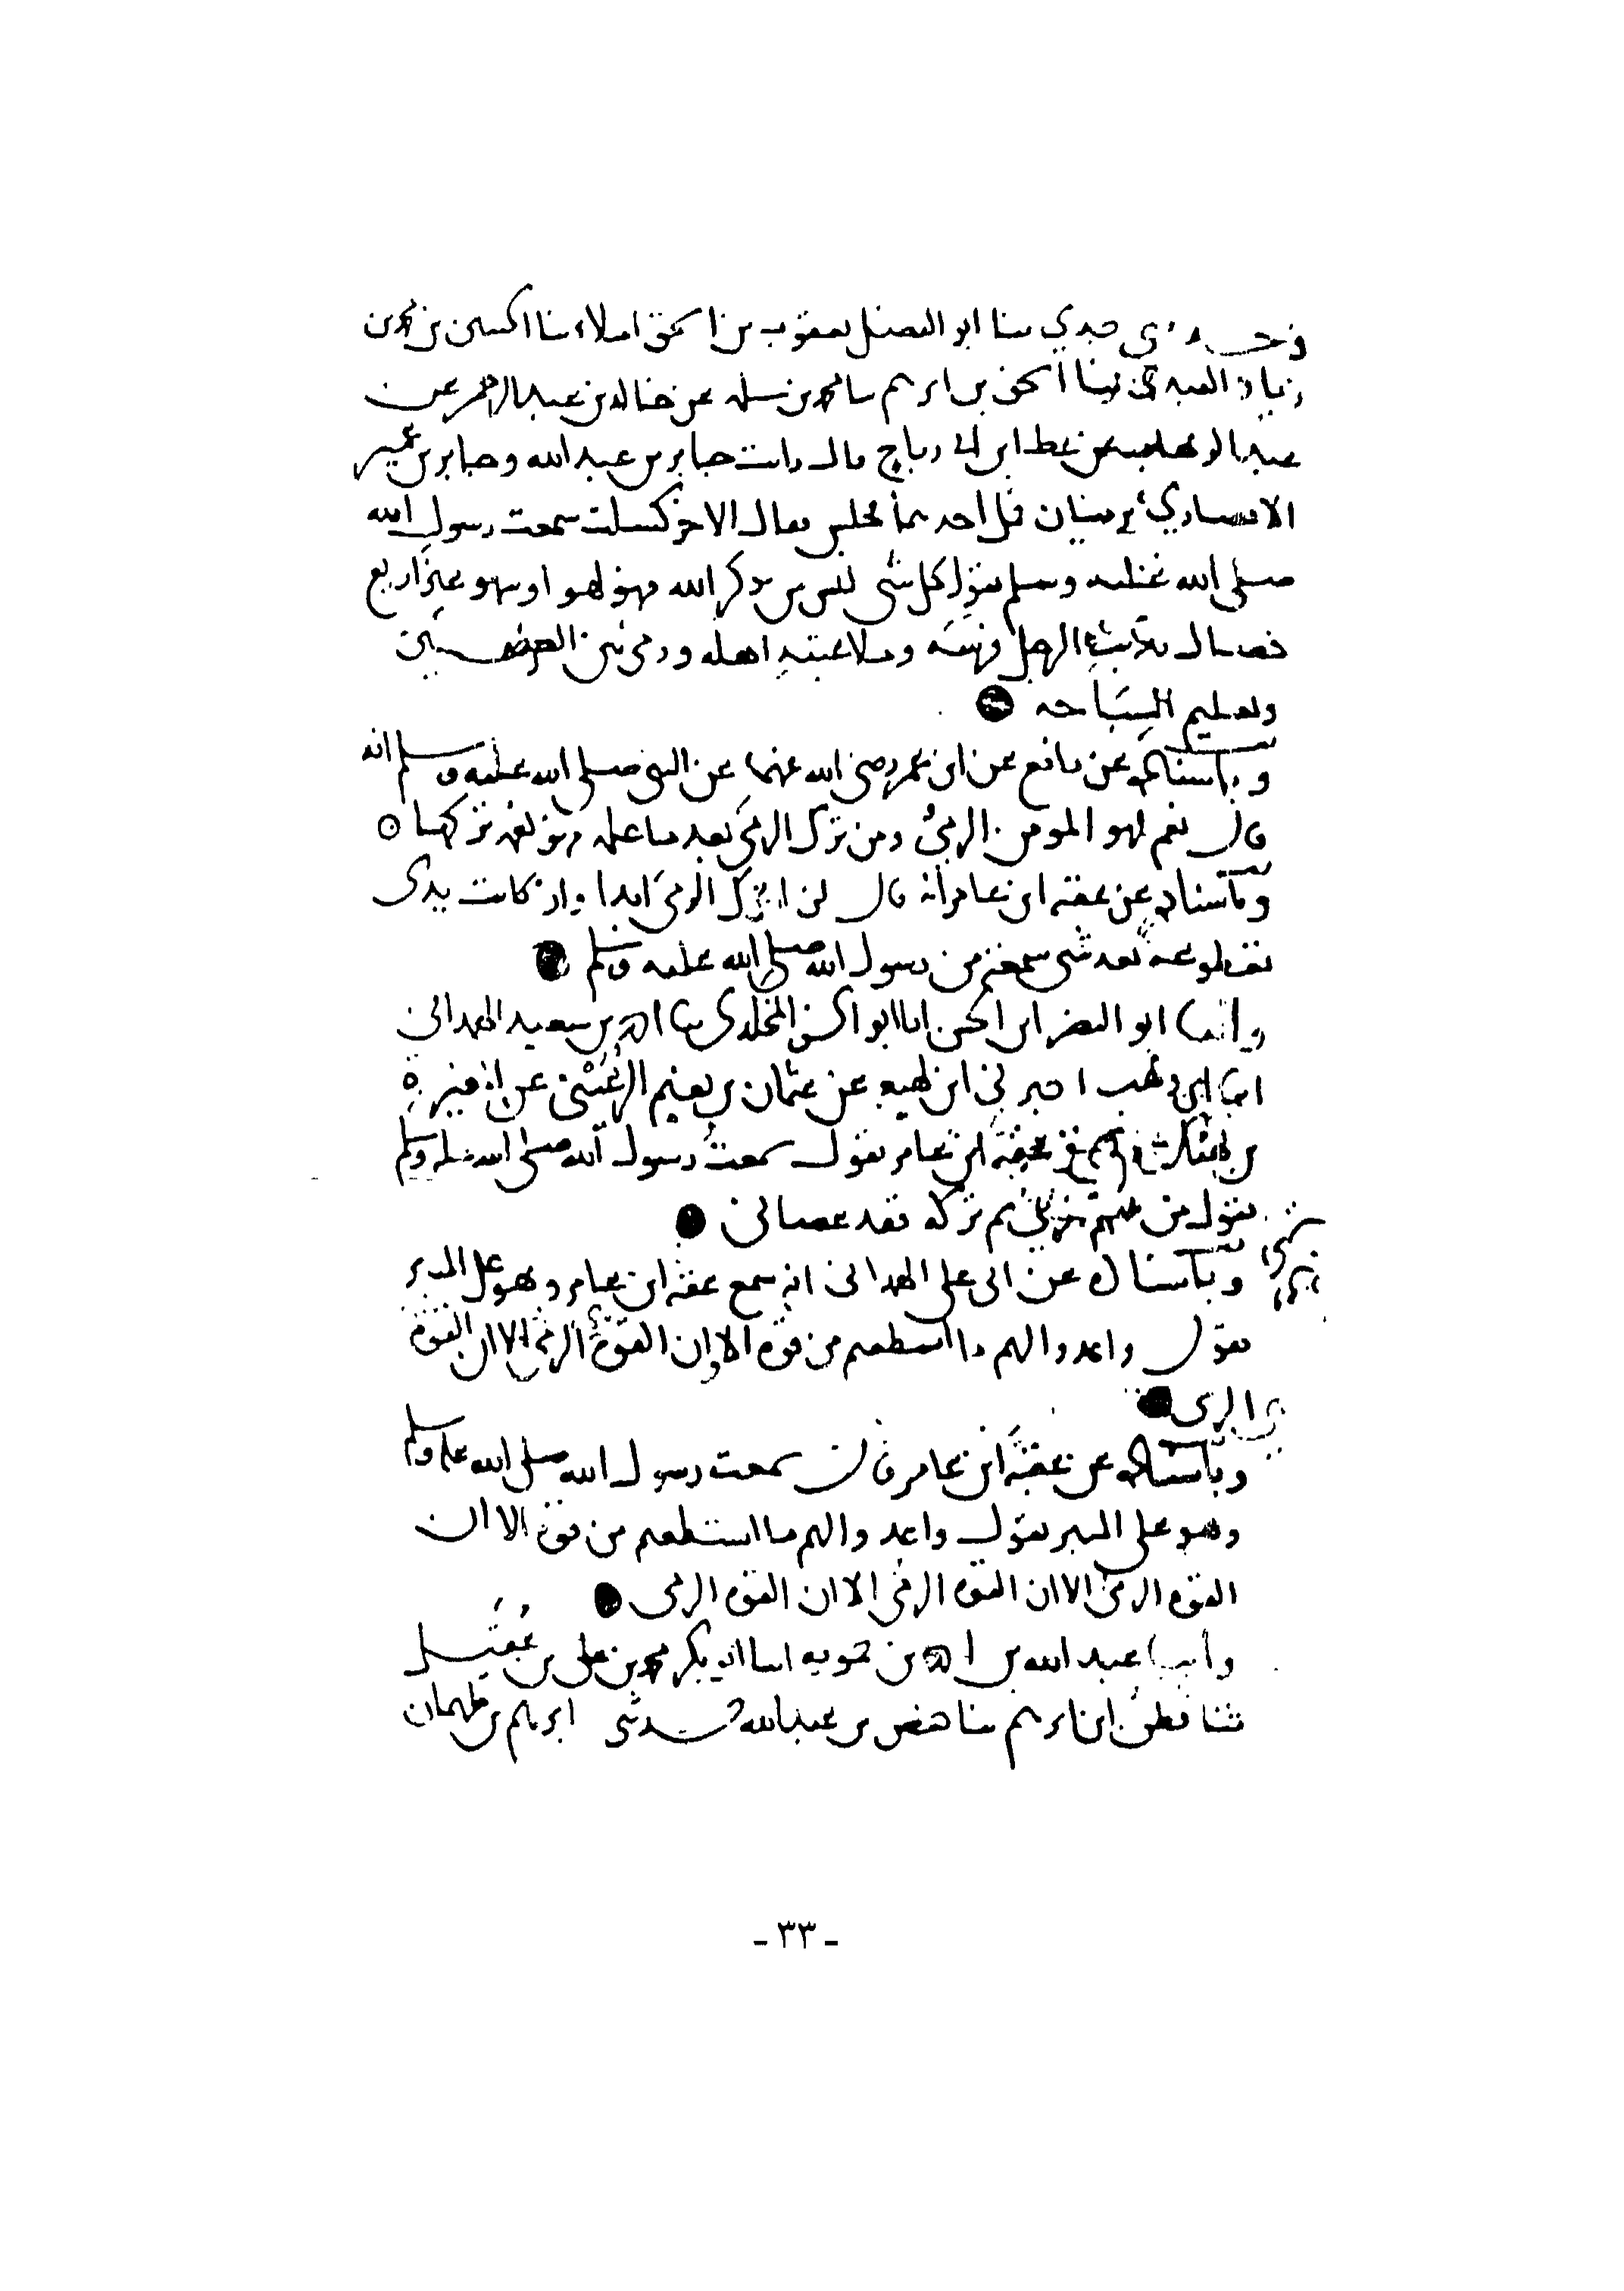 وحدثني جدي ثنا ابو الفضل يعقوب بن اسحق املاء ثنا الحسين بن محمد بن
زياد العبدي ثنا اسحق بن ابرهيم ثنا محمد بن سلمه عن خالد بن عبد الرحيم عن
عبد الوهاب عن عطا بن ابي رباح قال رايت جابر بن عبد الله وجابر بن عمير
الانصاري يرميان فمل احدهما فجلس فقال الاخر كسلت سمعت رسول الله
صلى الله عليه وسلم يقول كل شي ليس من ذكر الله فهو لهو او سهو غير اربع
خصال تاديب الرجل فرسه وملاعبته اهله ورمي بين الغرضين
وتعليم السباحه
وباسناده عن نافع عن ابن عمر رضي الله عنهما عن النبي صلى الله عليه وسلم انه
قال نعم لهو المومن الرمي ومن ترك الرمي بعد ما علمه فهو نعمة تركها
وباسناده عن عقبه ابن عامر انه قال لن اترك الرمي ابدا وان كانت يدي
مقطوعة بعد شي سمعته من رسول الله صلى الله عليه وسلم
وانبا ابو النضر ابن الحسن ابنا ابو الحسن المخلدي ثنا احمد بن سعيد الهمداني
ابنا ابن وهب اخبرني ابن لهيعه عن عثمان بن نعيم الرعيني عن المغيرة
بن نهيك سمع عقبة ابن عامر يقول سمعت رسول الله صلى الله عليه وسلم
يقول من تعلم الرمي ثم تركه فقد عصاني
وباسناده عن ابي علي الهمداني انه سمع عقبه ابن عامر وهو على المنبر
يقول واعدوا لهم ما استطعتم من قوة الا وان القوة الرمي الا ان القوة
الرمي
وباسناده عن عقبة ابن عامر قال سمعت رسول الله صلى الله عليه وسلم
وهو على المنبر يقول واعدوا لهم ما استطعتم من قوة الا ان
القوه الرمي الا ان القوه الرمي الا ان القوه الرمي
وانبا عبد الله بن احمد بن حمويه ابنا ابو بكر محمد بن علي بن عقيل
ثنا قطن ابن ابرهيم ثنا حفص بن عبد الله حدثني ابرهيم بن طهمان
- ٣٣ -